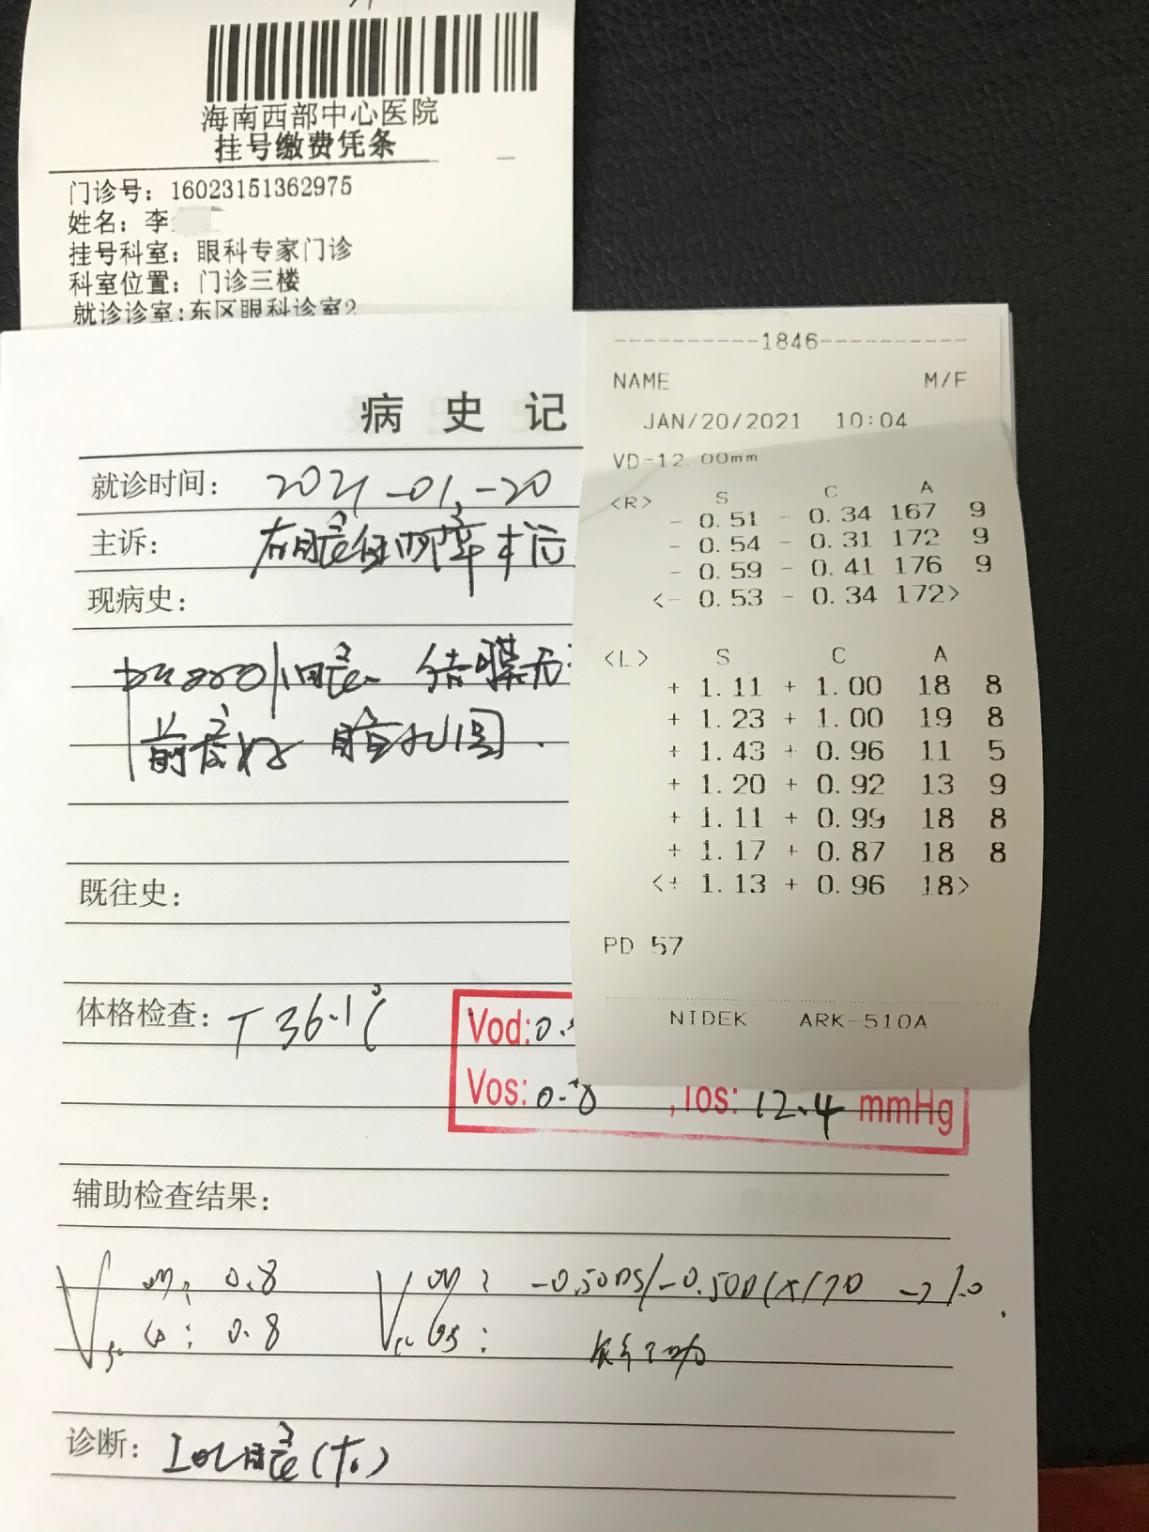 海南西部中心医院
挂号缴费凭条
门诊号: 16023151362975
姓名: 李
挂号科室: 眼科专家门诊
科室位置: 门诊三楼
就诊诊室:东区眼科诊室2
病 史 记
就诊时间: 2021-01-20
主诉:
现病史:
结膜无
瞳孔圆.
既往史:
体格检查: T 36.1℃
Vod:0.
Vos: 0.8 ,Ios: 12.4 mmHg
辅助检查结果:
0.8 -0.50DS/-0.50D(x170 →1.0
0.8
诊断: IOL眼(右)
----------1846----------
NAME M/F
JAN/20/2021 10:04
VD-12.00mm
<R> S C A
- 0.51 - 0.34 167 9
- 0.54 - 0.31 172 9
- 0.59 - 0.41 176 9
<- 0.53 - 0.34 172>
<L> S C A
+ 1.11 + 1.00 18 8
+ 1.23 + 1.00 19 8
+ 1.43 + 0.96 11 5
+ 1.20 + 0.92 13 9
+ 1.11 + 0.99 18 8
+ 1.17 + 0.87 18 8
<+ 1.13 + 0.96 18>
PD 57
NIDEK ARK-510A